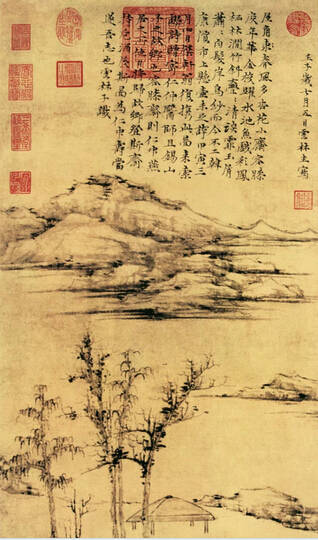 壬子歲七月五日雲林生寫
屋角春風多杏花小齋容膝
度年華金梭躍水池魚戲彩鳳
栖林澗竹斜亹〻清談霏玉屑
蕭〻白髮岸烏紗而今不二韓
康價市上懸壺未足誇甲寅三
月四日檗軒翁復攜此圖來索
謬詩贈寄仁仲醫師且錫山
予之故鄉也容膝齋則仁仲燕
居之所他日將歸故鄉登斯齋
持巵酒展斯圖為仁仲壽當
遂吾志也雲林子識